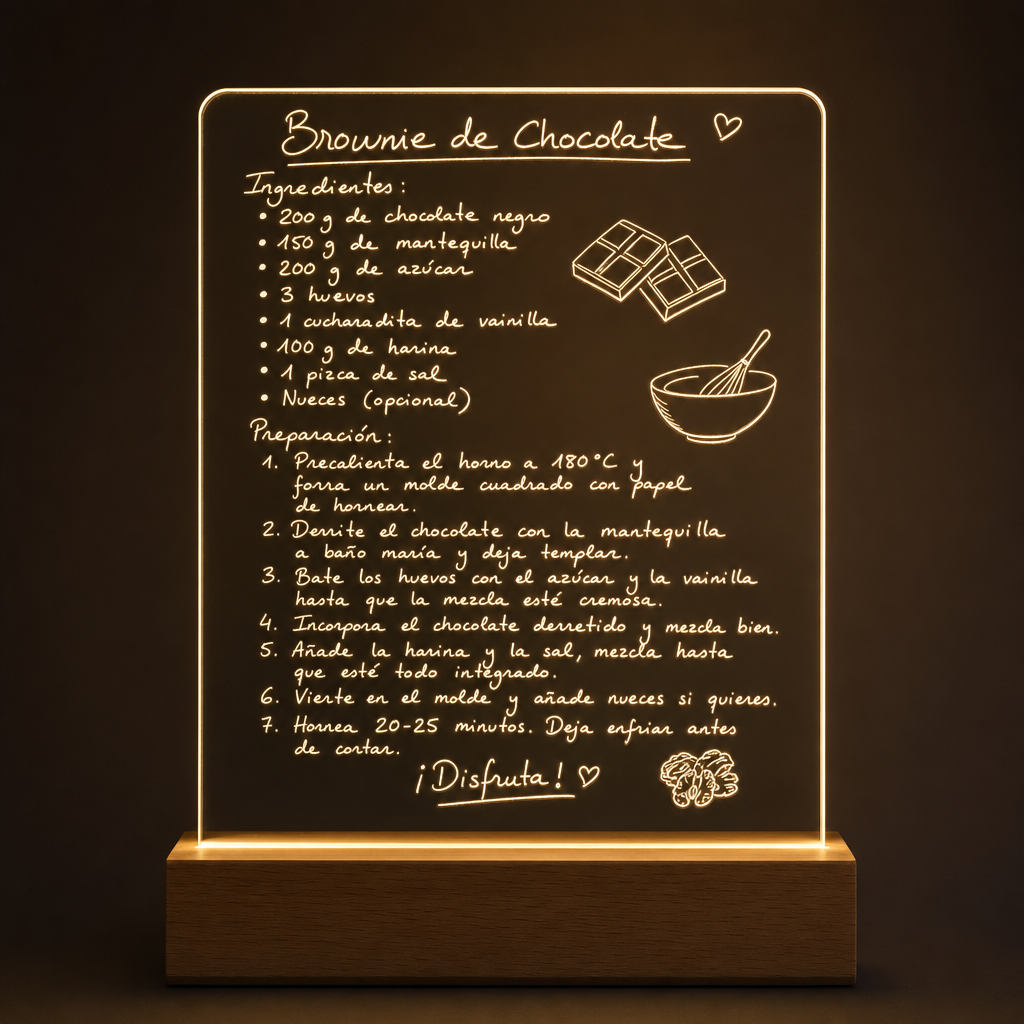 Brownie de Chocolate
Ingredientes:
• 200 g de chocolate negro
• 150 g de mantequilla
• 200 g de azúcar
• 3 huevos
• 1 cucharadita de vainilla
• 100 g de harina
• 1 pizca de sal
• Nueces (opcional)
Preparación:
1. Precalienta el horno a 180°C y
forra un molde cuadrado con papel
de hornear.
2. Derrite el chocolate con la mantequilla
a baño maría y deja templar.
3. Bate los huevos con el azúcar y la vainilla
hasta que la mezcla esté cremosa.
4. Incorpora el chocolate derretido y mezcla bien.
5. Añade la harina y la sal, mezcla hasta
que esté todo integrado.
6. Vierte en el molde y añade nueces si quieres.
7. Hornea 20-25 minutos. Deja enfriar antes
de cortar.
¡Disfruta!